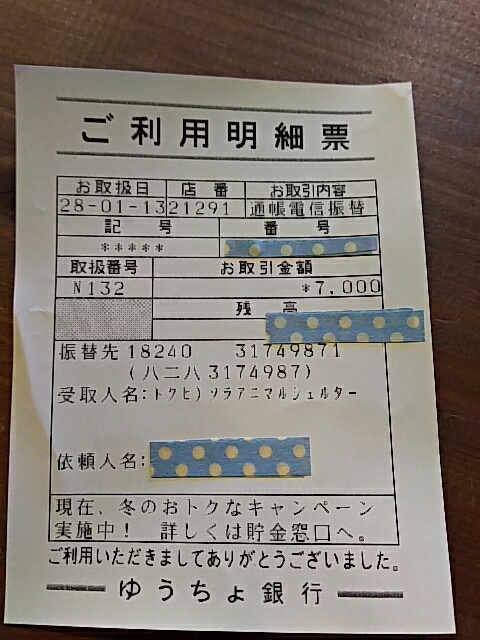 ご利用明細票
お取扱日 店番 お取引内容
28-01-13 21291 通帳電信振替
記号 番号
*****
取扱番号 お取引金額
N132 *7,000
残高
振替先 18240 31749871
(八二八 3174987)
受取人名:トクヒ)ソラアニマルシェルター
依頼人名:
現在、冬のおトクなキャンペーン
実施中! 詳しくは貯金窓口へ。
ご利用いただきましてありがとうございました。
ゆうちょ銀行